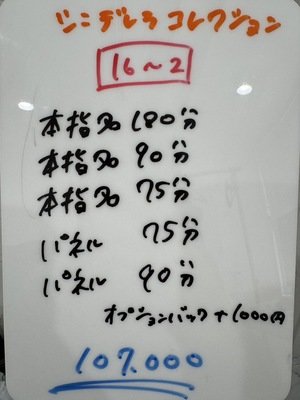 シンデレラコレクション
16~2
本指名 180分
本指名 90分
本指名 75分
パネル 75分
パネル 90分
オプションバック +1000円
107.000